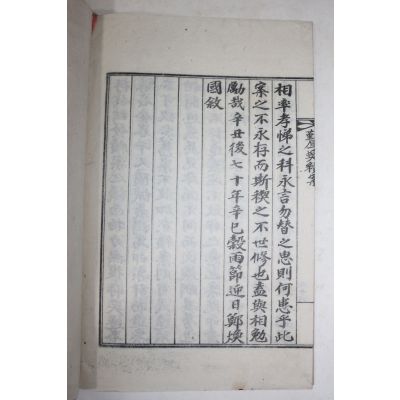 相率孝悌之科永言勿替之思則何患乎此
案之不永存而斯稧之不世修也盍與相勉
勵哉辛丑後七十年辛巳穀雨節迎日鄭煥
國敘